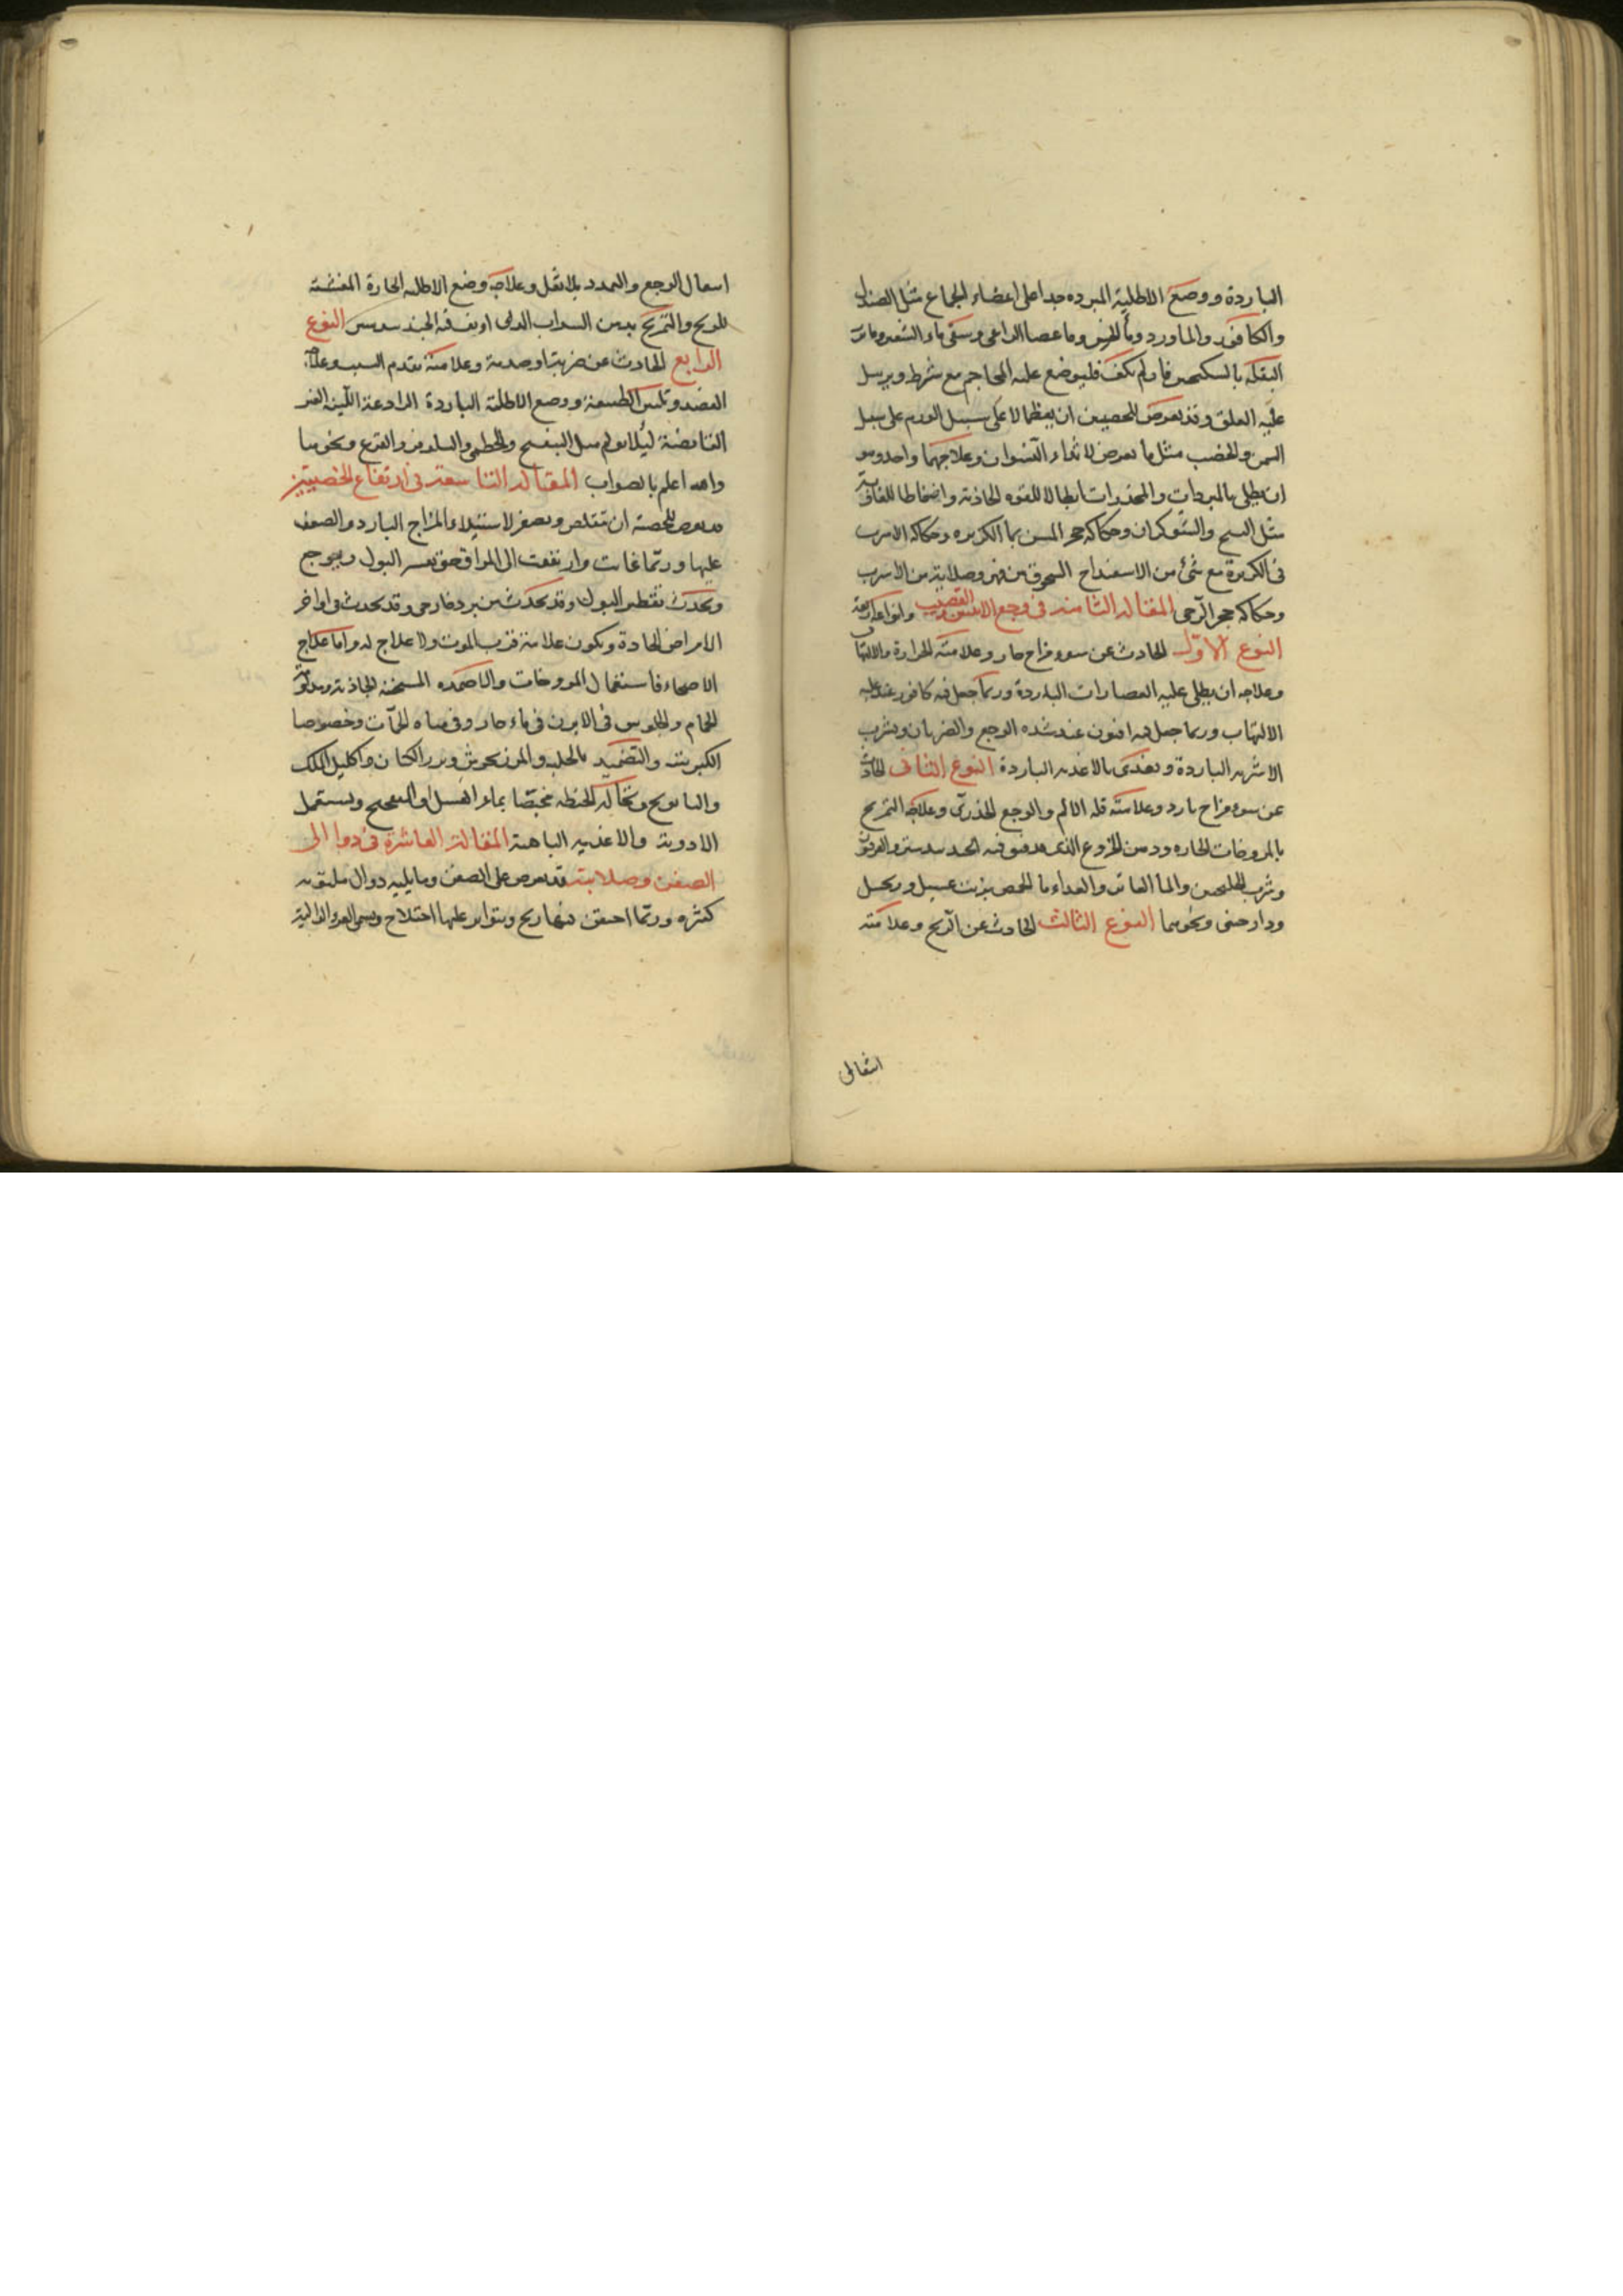 الباردة ووضع الاطلية المبرده جدا على اعضاء الجماع مثل الصندل
والكافور والماورد وماء الخس وما عصا الراعى وسقى ماء الشعير وماء
البقلة بالسكنجبين فان لم يكف فليوضع عليه المحاجم مع شرط ويرسل
عليه العلق وقد يعرض للخصيين ان يعظما لا على سبيل الورم على سبيل
السمن والخصب مثل ما يعرض لاثداء النسوان وعلاجهما واحد وهو
ان يطلى بالمبردات والمخدرات ابطالا للقوه الجاذبة واضغاطا للغاذية
مثل البنج والشوكران وحكاكه حجر المسن بماء الكزبره وحكاكه الاسرب
فى الكزبرة مع شئ من الاسفيداج المسحوق من فهر وصلاية من الاسرب
وحكاكه حجر الرحى المقاله الثامنه فى وجع الانثيين والقضيب وانواعه اربعة
النوع الاول الحادث عن سوء مزاج حار وعلامته الحرارة والالتهاب
وعلاجه ان يطلى عليه العصارات الباردة وربما جعل فيه كافور عند غلبه
الالتهاب وربما جعل فيه افيون عند شده الوجع والضربان ويشرب
الاشربه الباردة ويغتذى بالاغذيه الباردة النوع الثانى الحادث
عن سوء مزاج بارد وعلامته قله الالم والوجع الخدرى وعلاجه التمريخ
بالمروخات الحاره ودهن الخروع الذى فتق فيه الجندبيدستر والفربيون
وشرب الجلنجبين والماء الفاتر والغداء ماء الحمص بزيت عسل وزنجبيل
ودارصينى ونحوهما النوع الثالث الحادث عن الريح وعلامته
انتقال
انتقال الوجع والتمدد بلا ثقل وعلاجه وضع الاطليه الحارة المفشة
للريح والتمريخ بدهن السداب الذى اديف فيه الجندبيدستر النوع
الرابع الحادث عن ضربة او صدمة وعلامته تقدم السبب وعلاجه
الفصد وتليين الطبيعة ووضع الاطلية الباردة الرادعة اللينه الغير
القابضة ليلا يولم مثل البنفسج والخطمى والنيلوفر والقرع ونحوها
والله اعلم بالصواب المقاله التاسعة فى ارتفاع الخصيتين
قد يعرض للخصية ان تتقلص وتصغر لاستيلاء المزاج البارد والضعف
عليها وربما غابت وارتفعت الى المراق حتى يعسر البول ويوجع
ويحدث تقطير البول وقد يحدث من برد خارجى وقد يحدث فى اواخر
الامراض الحادة ويكون علامة قرب الموت ولا علاج له واما علاج
الاصحاء فاستعمال المروخات والاضمده المسخنه الجاذبة
الحمام والجلوس فى الابزن فى ماء حار وفى مياه الحمات وخصوصا
الكبريتيه والتضميد بالحلبه والمرزنجوش وبزر الكتان واكليل الملك
والبابونج ونخاله الحنطه مخبصا بماء العسل او الميبختج ويستعمل
الادوية والاغذيه الباهية المقالة العاشرة فى دوالى
الصفن وصلابته قد يعرض على الصفن وما يليه دوال ملتويه
كثيره وربما احتقن فيها ريح ويتواتر عليها اختلاج